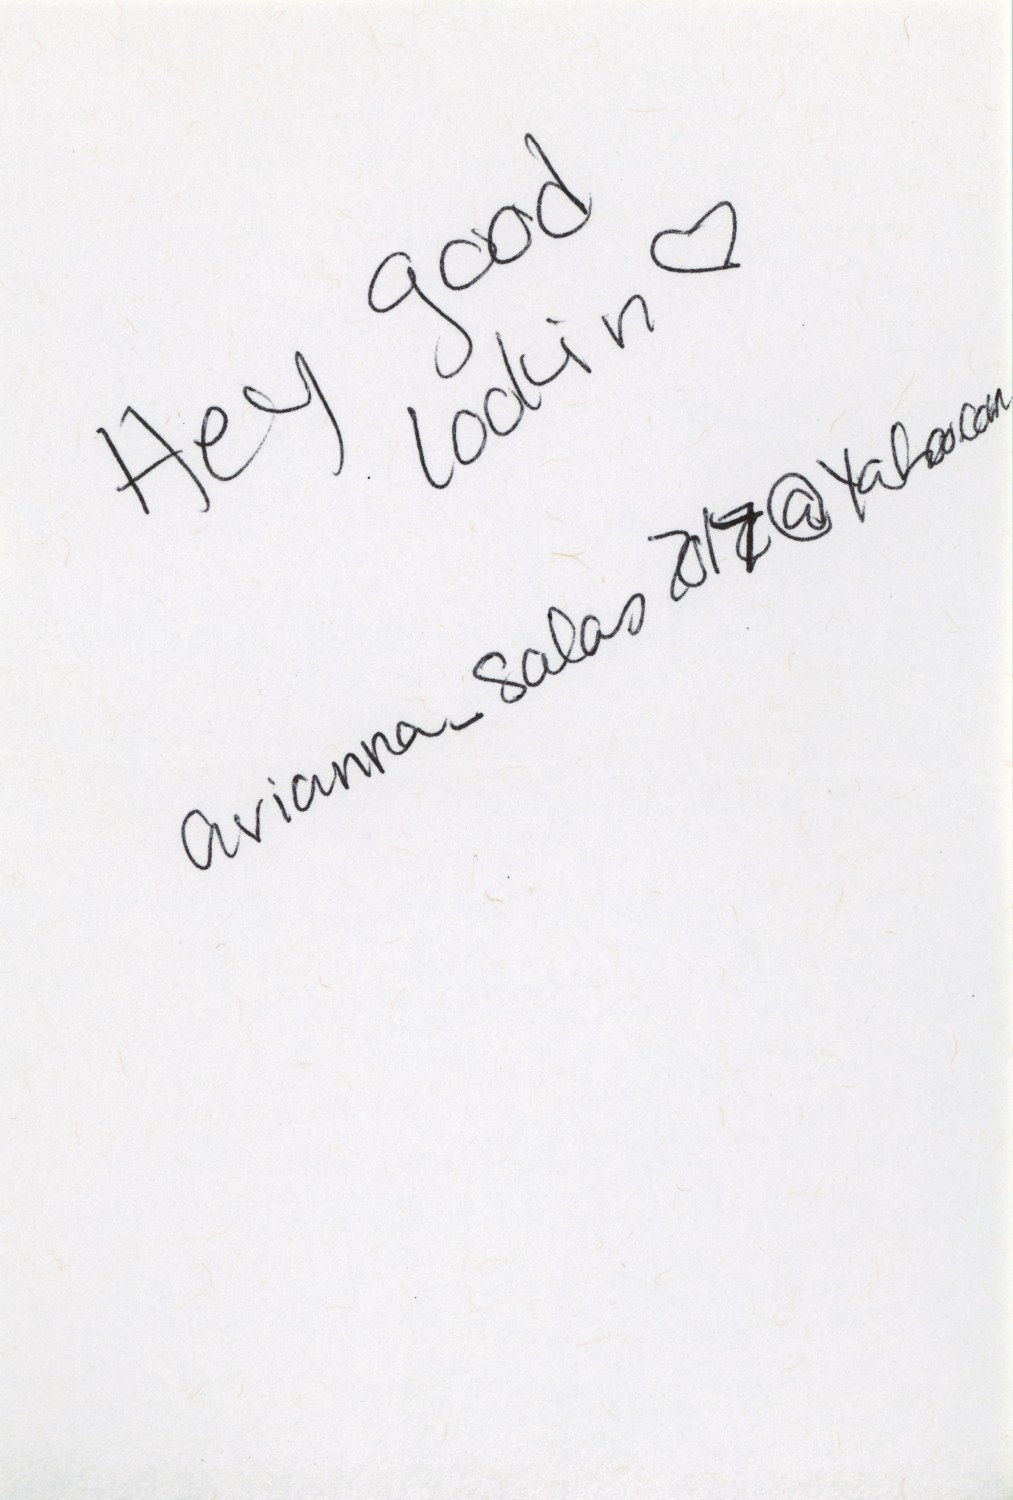 Hey good
lookin ♡
arianna_salas2017@yahoo.com